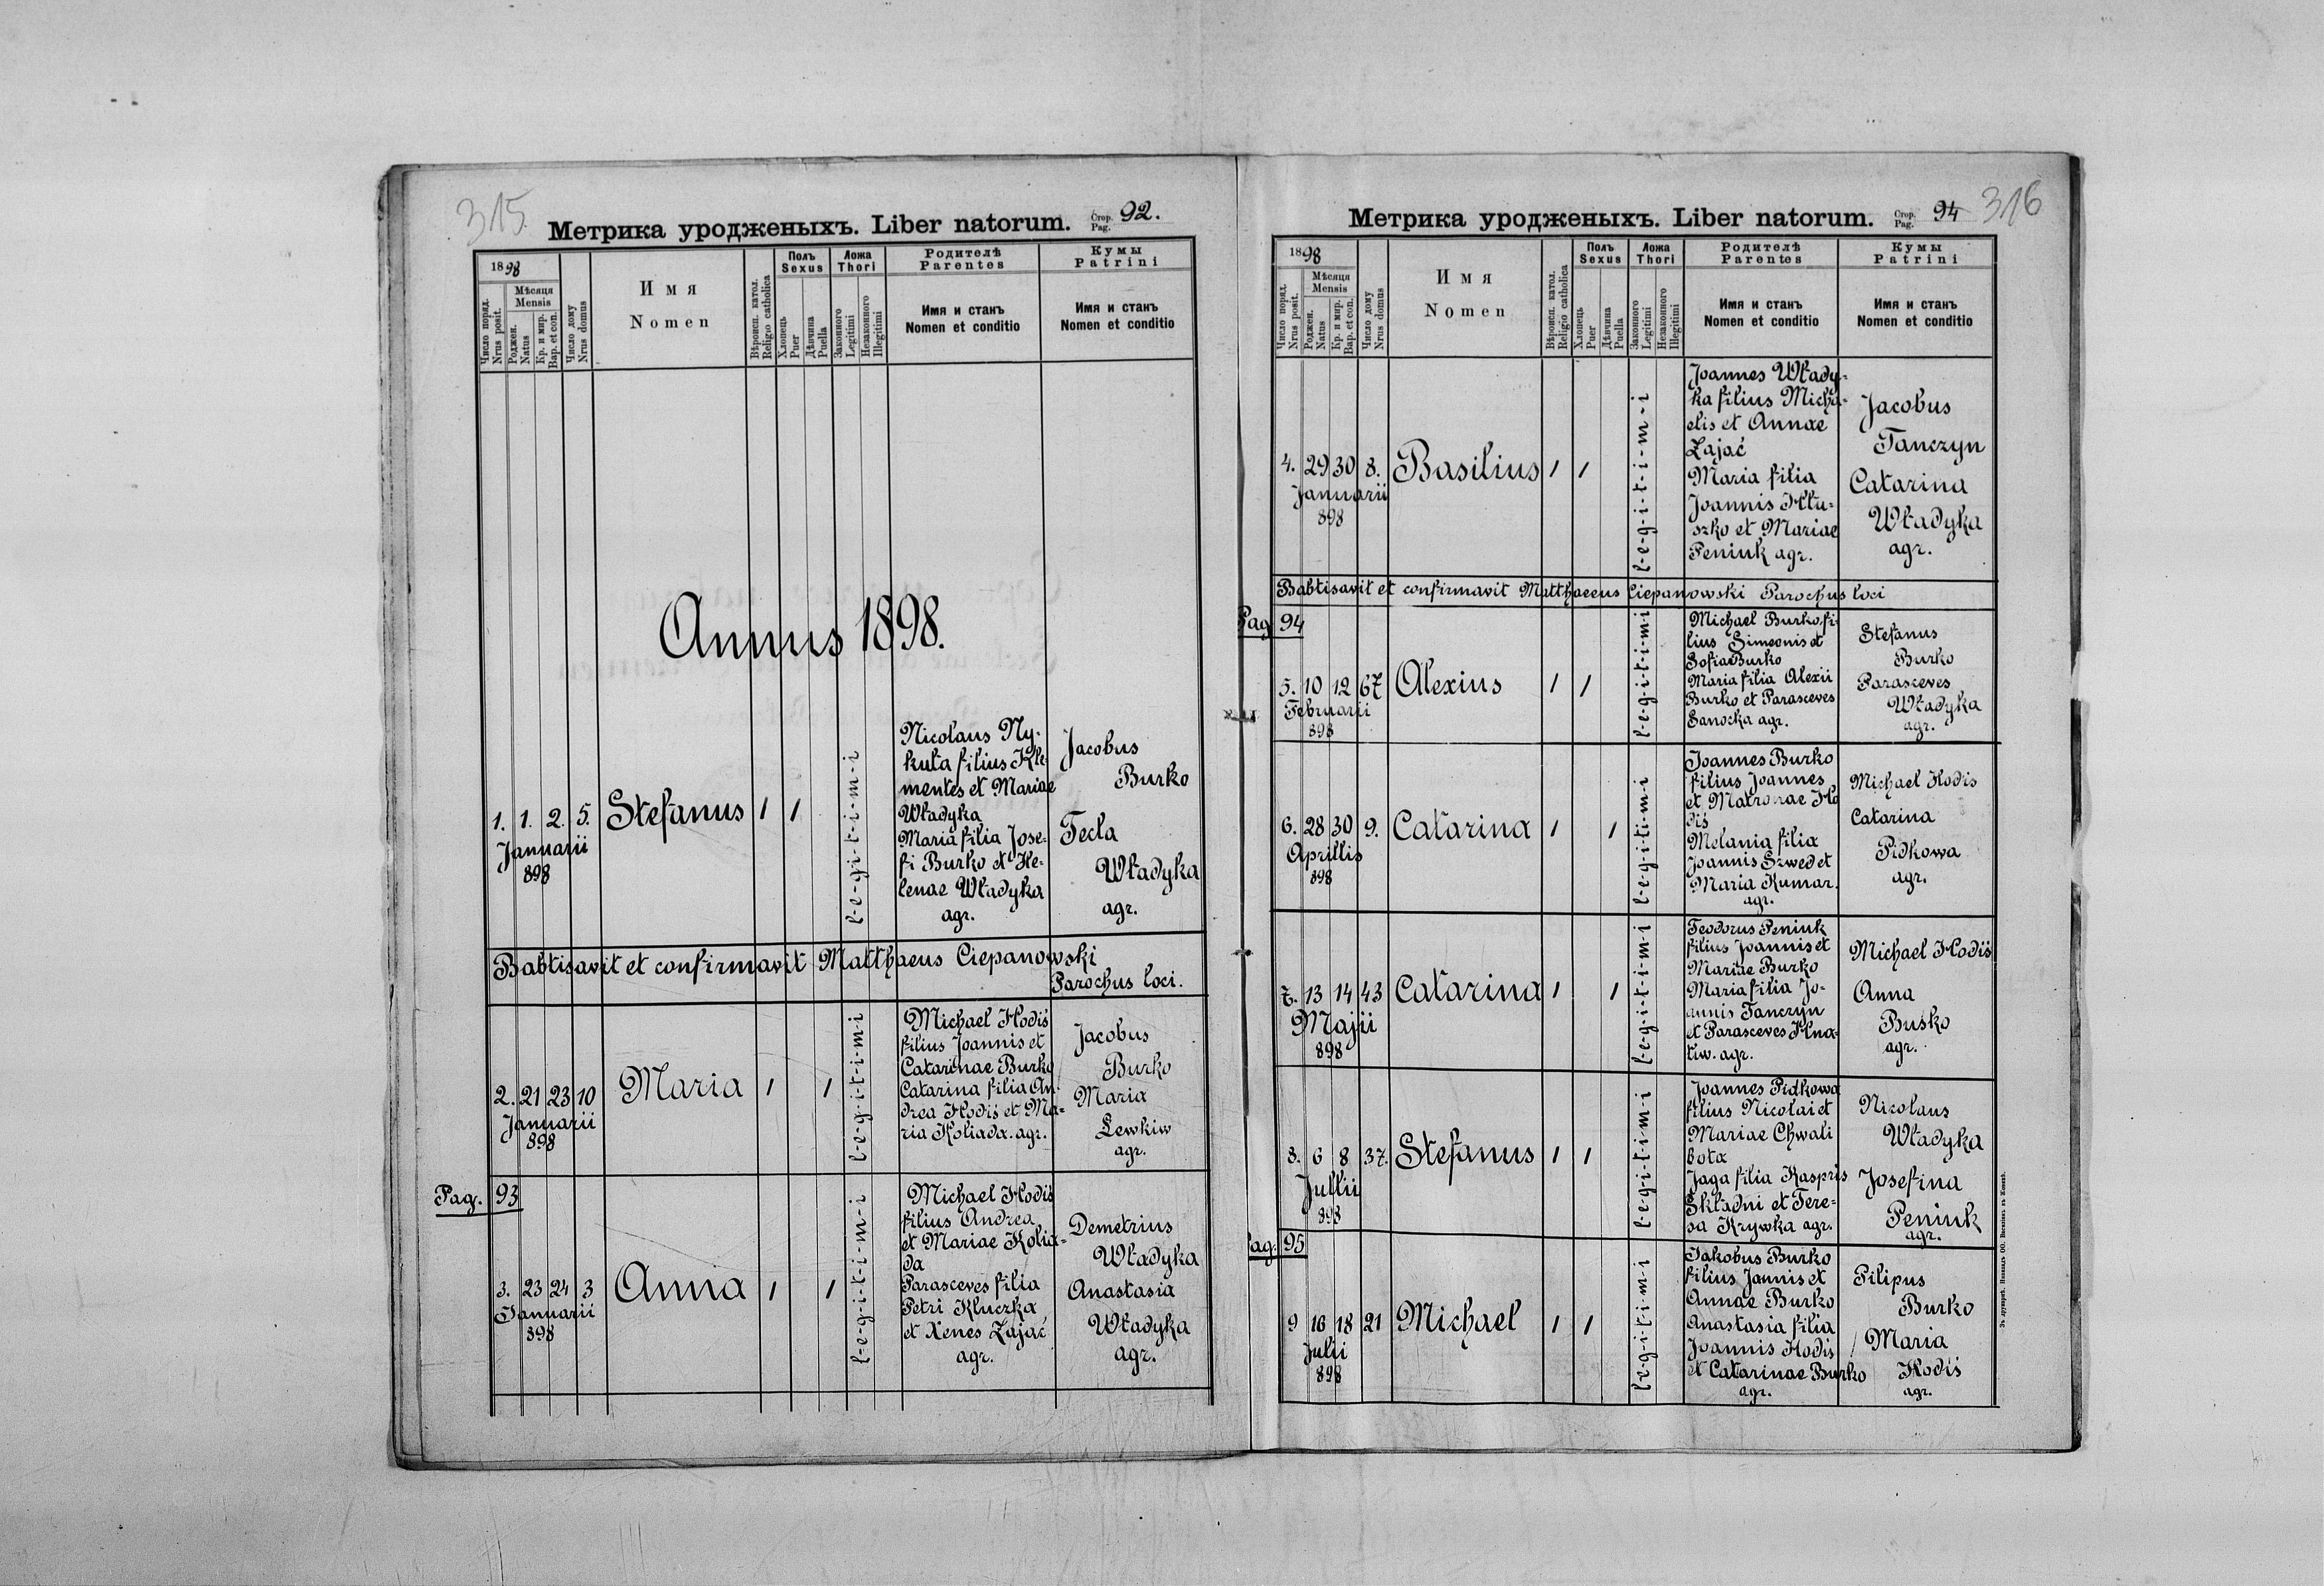 315
Метрика уродженыхъ. Liber natorum. Стор. Pag. 92.
1898
Число поряд. Nrus posit.
Мѣсяця Mensis
Роджен. Natus
Кр. и мир. Bap. et con.
Число дому Nrus domus
Имя
Nomen
Вѣроисп. катол. Religio catholica
Полъ Sexus
Хлопець Puer
Дѣвчина Puella
Ложа Thori
Законного Legitimi
Незаконного Illegitimi
Родителѣ
Parentes
Имя и станъ
Nomen et conditio
Кумы
Patrini
Имя и станъ
Nomen et conditio
Annus 1898.
1. 1. 2. 5. Stefanus 1 1
Januarii
898
l-e-g-i-t-i-m-i
Nicolaus Ny-
kuta filius Kle-
mentes et Mariae
Władyka
Maria filia Jose-
fi Burko et He-
lenae Władyka
agr.
Jacobus
Burko
Tecla
Władyka
agr.
Babtisavit et confirmavit Matthaeus Ciepanowski
Parochus loci.
2. 21 23 10 Maria 1 1
Januarii
898
l-e-g-i-t-i-m-i
Michael Hodiś
filius Joannis et
Catarinae Burko
Catarina filia An-
drea Hodiś et Ma-
ria Koliada. agr.
Jacobus
Burko
Maria
Lewkiw
agr.
Pag. 93
3. 23 24 3 Anna 1 1
Januarii
898
l-e-g-i-t-i-m-i
Michael Hodiś
filius Andrea
et Mariae Kolia-
da
Parasceves filia
Petri Kluczka
et Xenes Zająć
agr.
Demetrius
Władyka
Anastasia
Władyka
agr.
316
Метрика уродженыхъ. Liber natorum. Стор. Pag. 94
1898
Число поряд. Nrus posit.
Мѣсяця Mensis
Роджен. Natus
Кр. и мир. Bap. et con.
Число дому Nrus domus
Имя
Nomen
Вѣроисп. катол. Religio catholica
Полъ Sexus
Хлопець Puer
Дѣвчина Puella
Ложа Thori
Законного Legitimi
Незаконного Illegitimi
Родителѣ
Parentes
Имя и станъ
Nomen et conditio
Кумы
Patrini
Имя и станъ
Nomen et conditio
4. 29 30 8. Basilius 1 1
Januarii
898
l-e-g-i-t-i-m-i
Joannes Włady-
ka filius Micha-
elis et Annae
Zająć
Maria filia
Joannis Hłu-
szko et Mariae
Peniuk agr.
Jacobus
Tanczyn
Catarina
Władyka
agr.
Babtisavit et confirmavit Matthaeeus Ciepanowski Parochus loci
Pag 94
5. 10 12 67 Alexius 1 1
Februarii
898
l-e-g-i-t-i-m-i
Michael Burko, fi-
lius Simeonis et
Sofia Burko
Maria filia Alexii
Burko et Parasceves
Sanocka agr.
Stefanus
Burko
Parasceves
Władyka
agr.
6. 28 30 9. Catarina 1 1
Aprillis
898
l-e-g-i-t-i-m-i
Joannes Burko
filius Joannes
et Matronae Ho
diś
Melania filia
Joannis Szwed et
Maria Kumar.
agr.
Michael Hodis
Catarina
Pidkowa
agr.
7. 13 14 43 Catarina 1 1
Majii
898
l-e-g-i-t-i-m-i
Teodorus Peniuk
filius Joannis et
Mariae Burko
Maria filia Jo-
annis Tanczyn
et Parasceves Hna-
tiw. agr.
Michael Hodiś
Anna
Busko
agr.
8. 6 8 37. Stefanus 1 1
Jullii
898
l-e-g-i-t-i-m-i
Joannes Pidkowa
filius Nicolai et
Mariae Chwali
bota
Jaga filia Kaspris
Składni et Tere-
sa Krywka agr.
Nicolaus
Władyka
Josefina
Peniuk
agr.
Pag. 95
9 16 18 21 Michael 1 1
Julii
898
l-e-g-i-t-i-m-i
Jakobus Burko
filius Jannis et
Annae Burko
Anastasia filia
Joannis Hodis
et Catarinae Burko
agr.
Pilipus
Burko
Maria
Hodiś
agr.